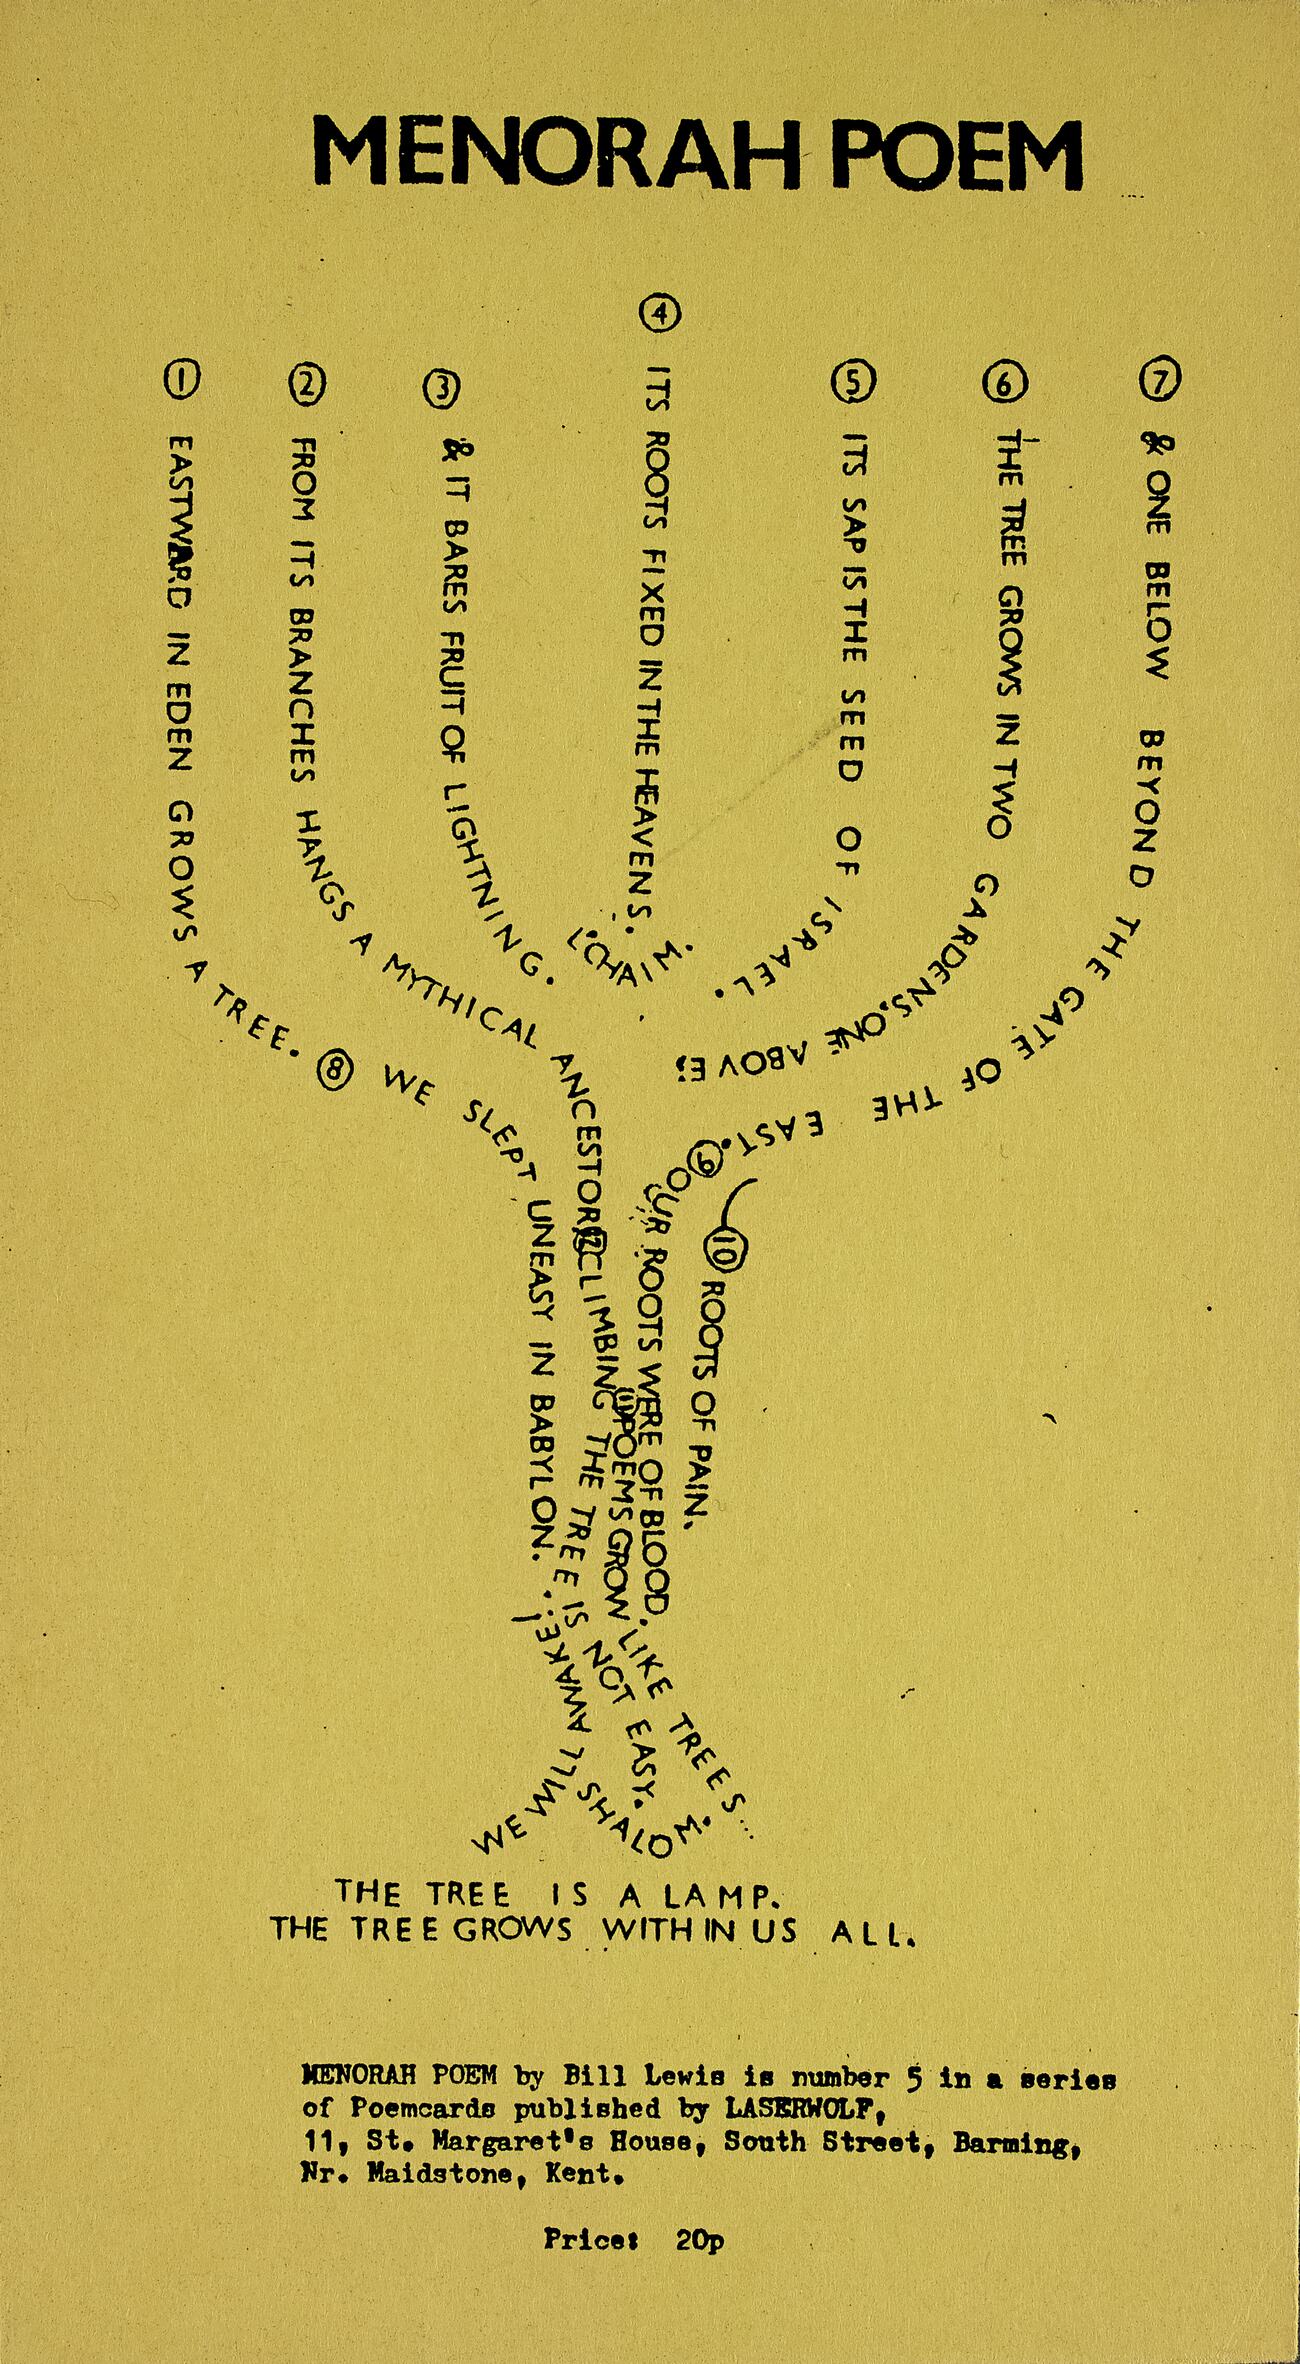 MENORAH POEM
① EASTWARD IN EDEN GROWS A TREE.
② FROM ITS BRANCHES HANGS A MYTHICAL ANCESTOR
③ & IT BARES FRUIT OF LIGHTNING.
④ ITS ROOTS FIXED IN THE HEAVENS.
L'CHAIM.
⑤ ITS SAP IS THE SEED OF ISRAEL.
⑥ THE TREE GROWS IN TWO GARDENS. ONE ABOVE;
⑦ & ONE BELOW BEYOND THE GATE OF THE EAST.
⑧ WE SLEPT UNEASY IN BABYLON...
⑨ OUR ROOTS WERE OF BLOOD.
⑩ ROOTS OF PAIN.
⑪ POEMS GROW LIKE TREES...
⑫ CLIMBING THE TREE IS NOT EASY.
WE WILL AWAKE!
SHALOM.
THE TREE IS A LAMP.
THE TREE GROWS WITHIN US ALL.
MENORAH POEM by Bill Lewis is number 5 in a series
of Poemcards published by LASERWOLF,
11, St. Margaret's House, South Street, Barming,
Nr. Maidstone, Kent.
Price: 20p